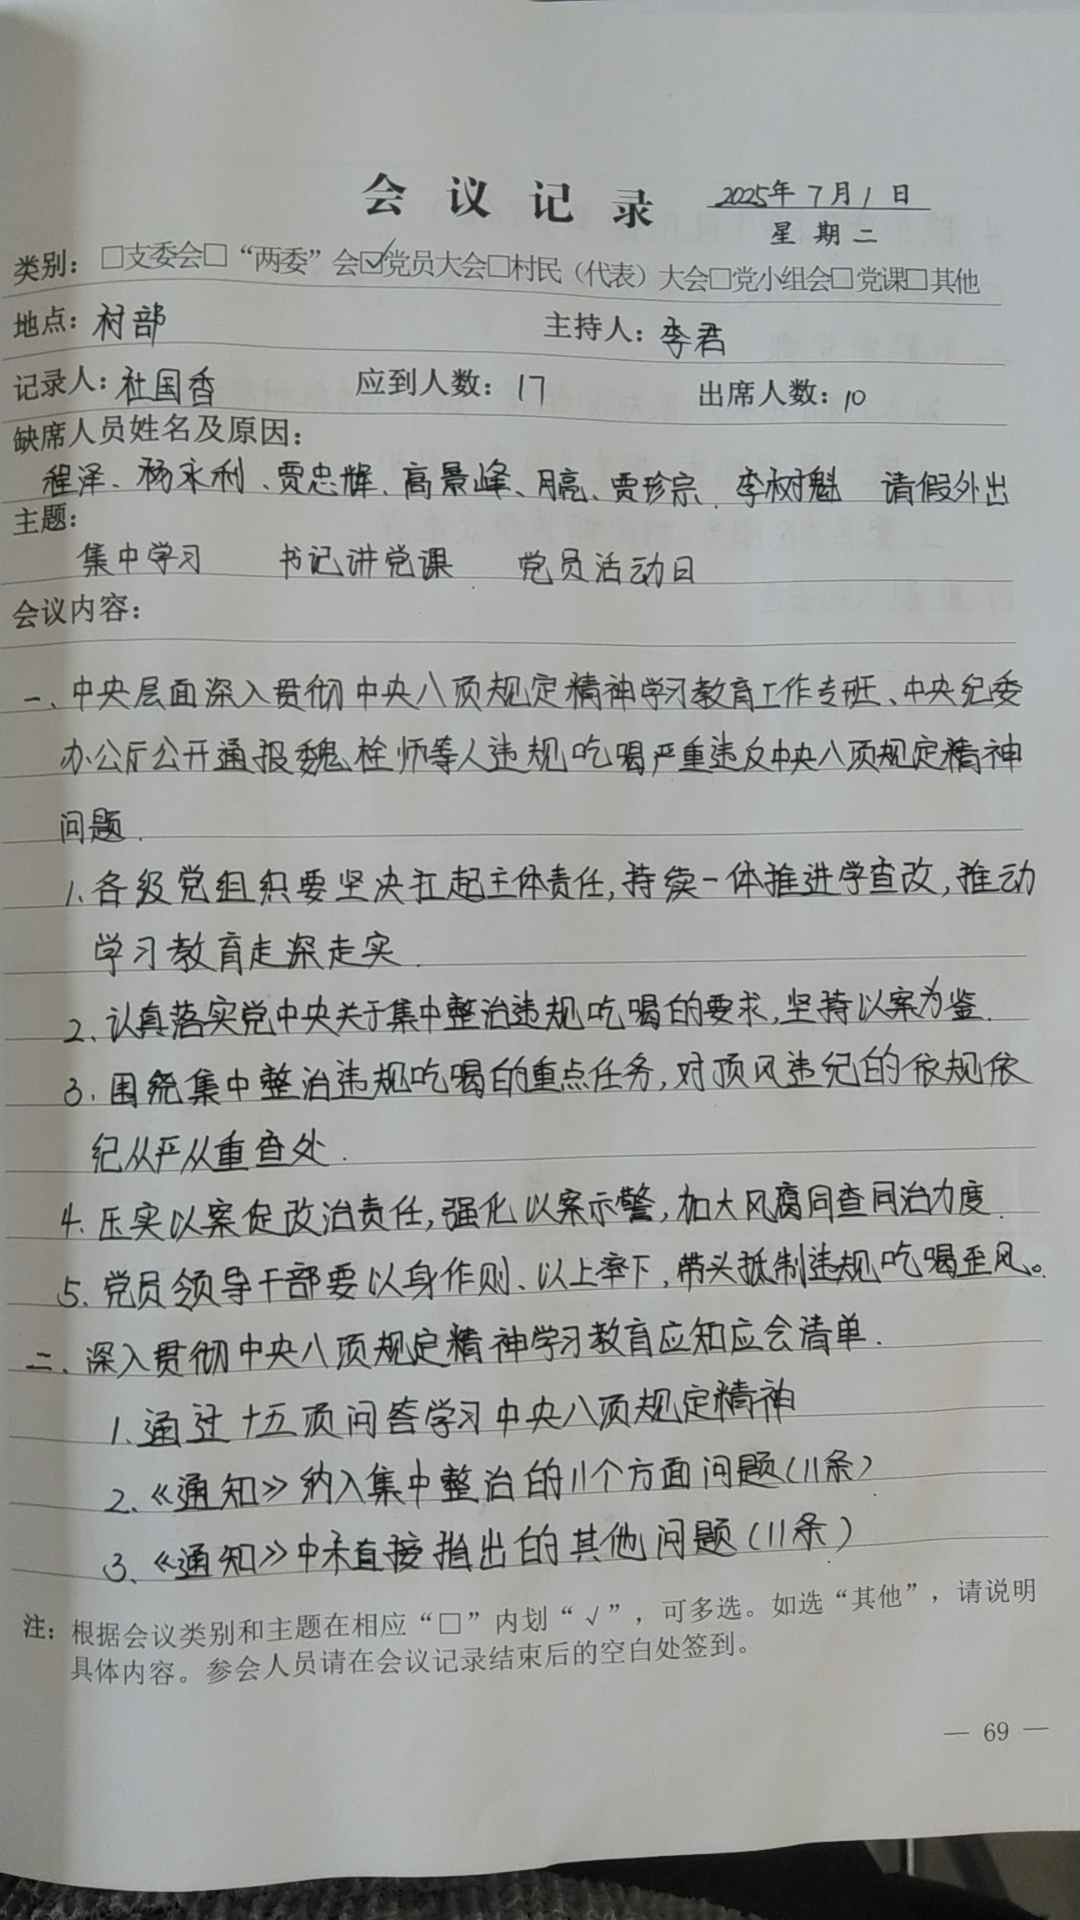 会议记录 2025年7月1日
星期二
类别：□支委会□“两委”会☑党员大会□村民（代表）大会□党小组会□党课□其他
地点：村部 主持人：李君
记录人：杜国香 应到人数：17 出席人数：10
缺席人员姓名及原因：
程泽、杨永利、贾忠辉、高景峰、月亮、贾珍宗、李树魁 请假外出
主题：
集中学习 书记讲党课 党员活动日
会议内容：
一、中央层面深入贯彻中央八项规定精神学习教育工作专班、中央纪委
办公厅公开通报魏栓师等人违规吃喝严重违反中央八项规定精神
问题.
1.各级党组织要坚决扛起主体责任,持续一体推进学查改,推动
学习教育走深走实.
2.认真落实党中央关于集中整治违规吃喝的要求,坚持以案为鉴.
3.围绕集中整治违规吃喝的重点任务,对顶风违纪的依规依
纪从严从重查处.
4.压实以案促改治责任,强化以案示警,加大风腐同查同治力度.
5.党员领导干部要以身作则、以上率下,带头抵制违规吃喝歪风。
二.深入贯彻中央八项规定精神学习教育应知应会清单.
1.通过十五项问答学习中央八项规定精神
2.《通知》纳入集中整治的11个方面问题(11条)
3.《通知》中未直接指出的其他问题(11条)
注：根据会议类别和主题在相应“□”内划“√”，可多选。如选“其他”，请说明
具体内容。参会人员请在会议记录结束后的空白处签到。
— 69 —